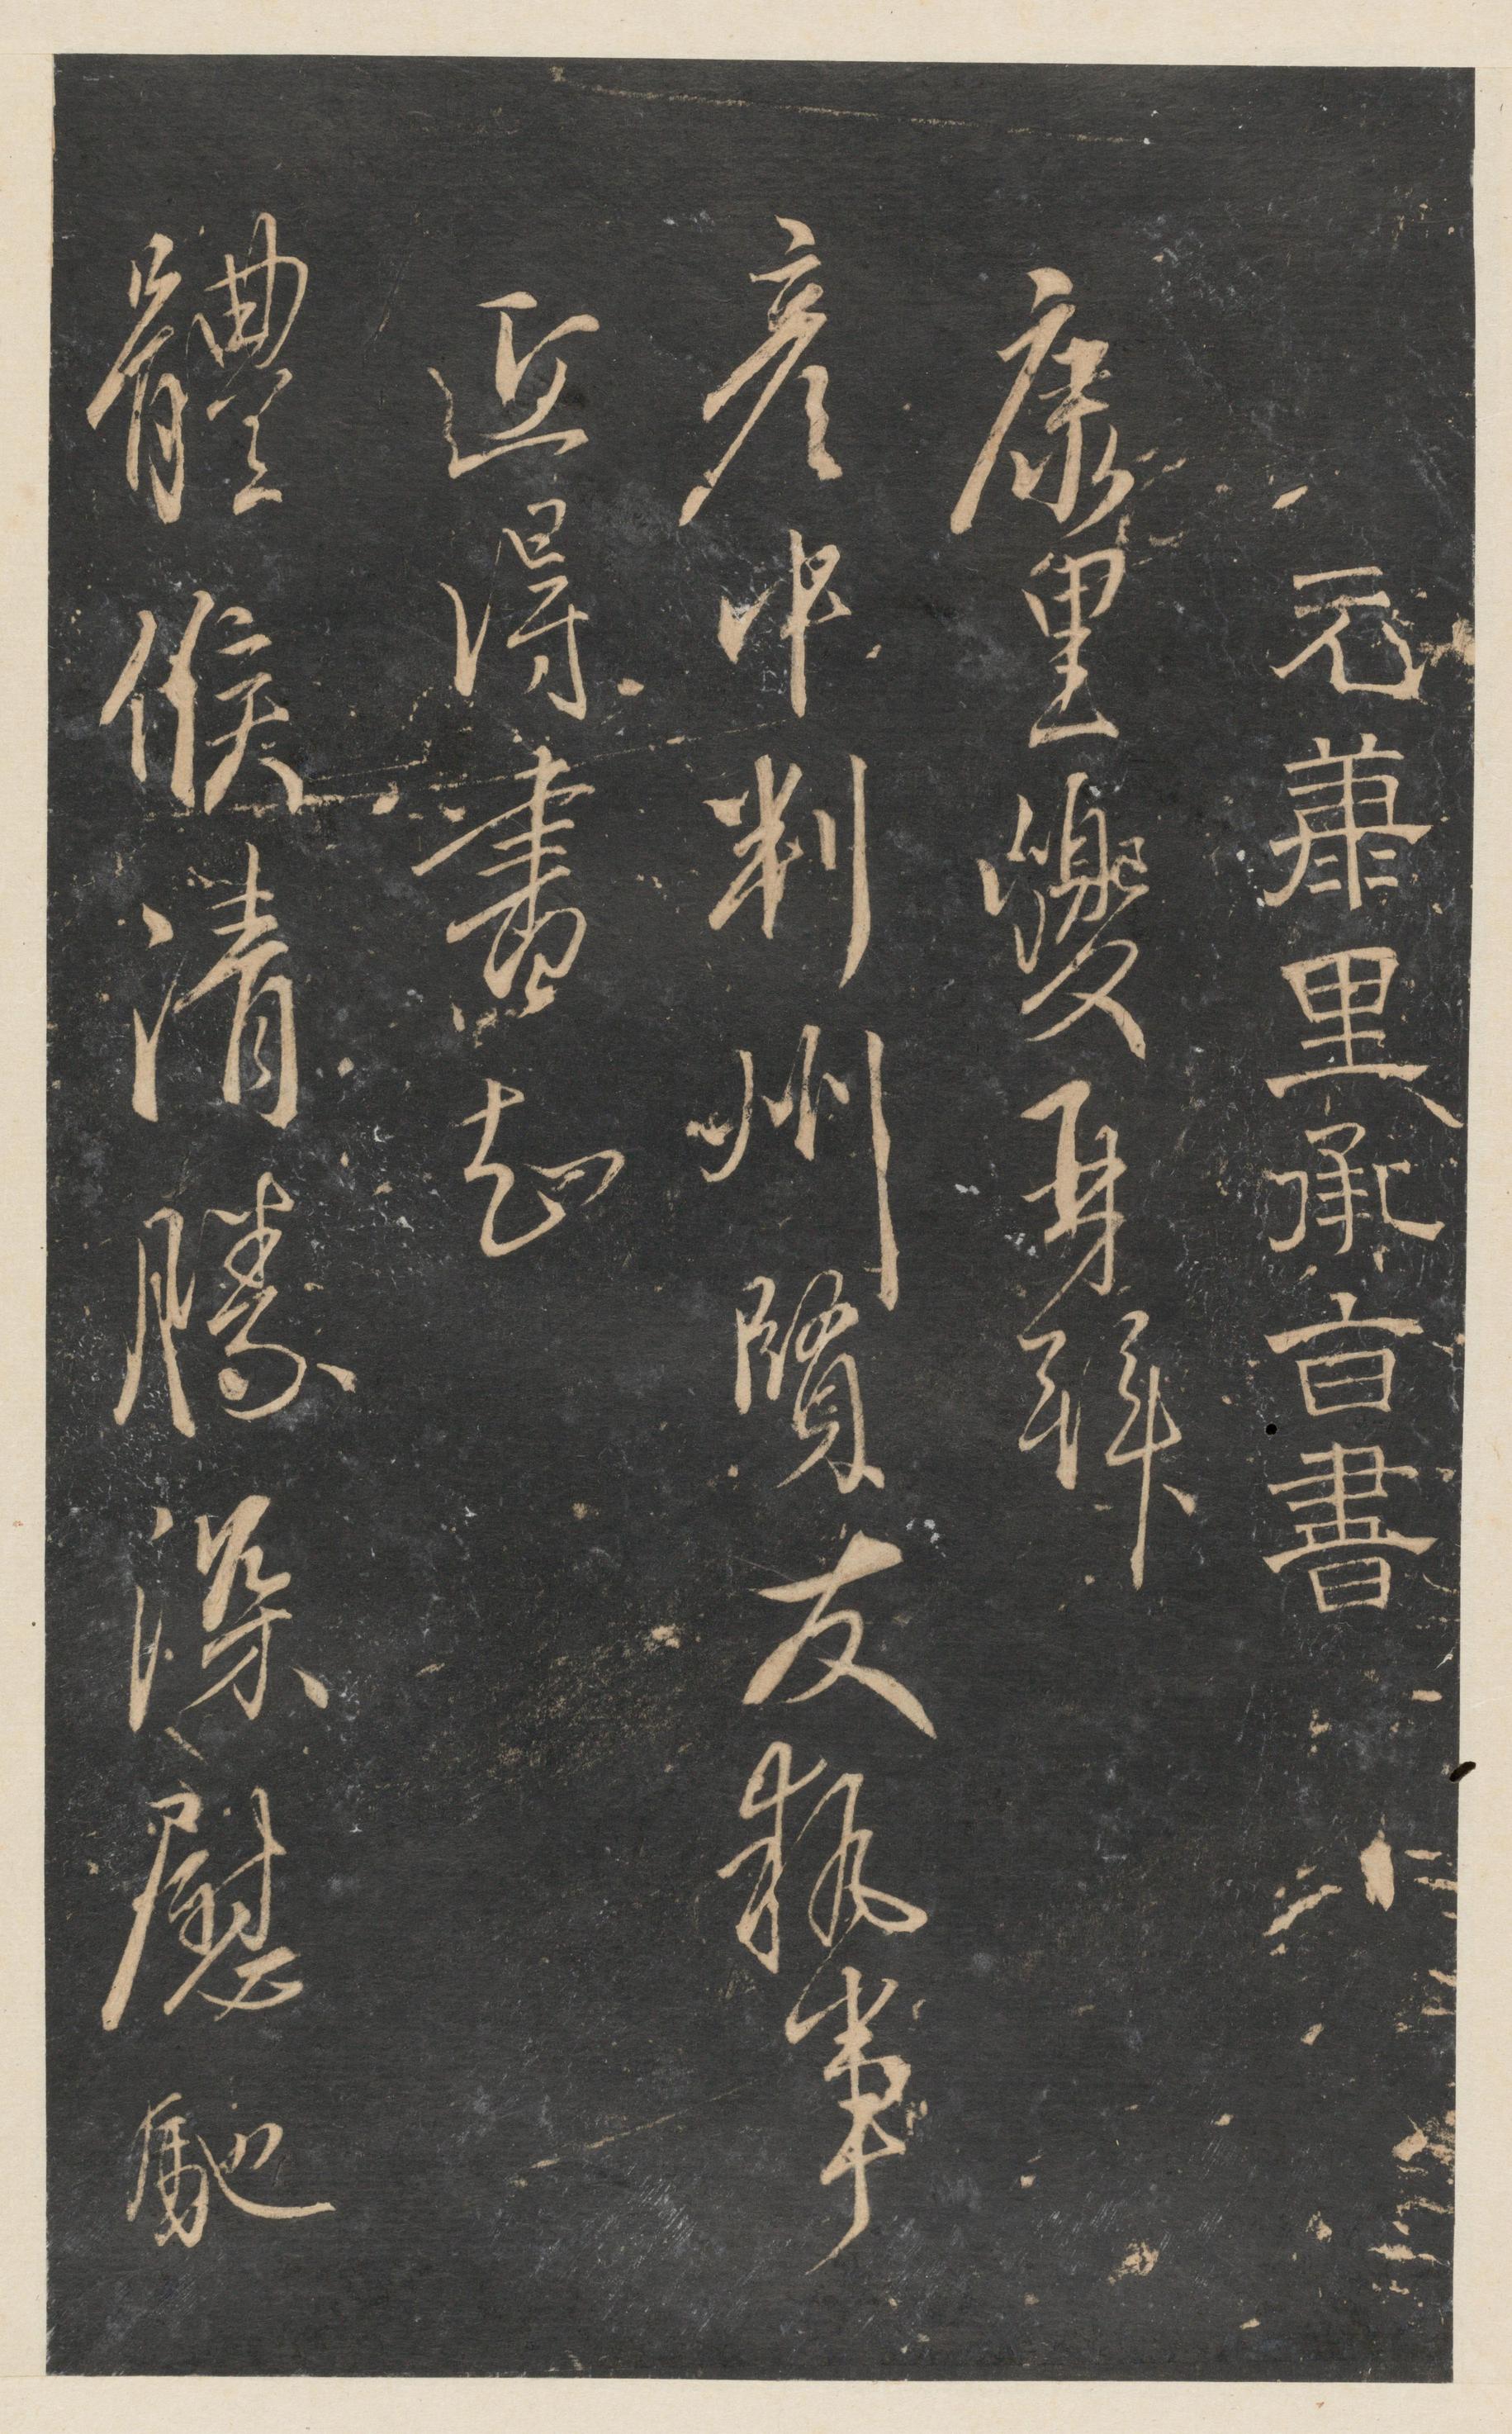 元康里承旨書
康里巎再拜
彥中判州賢友執事
近得書知
體候清勝深慰馳